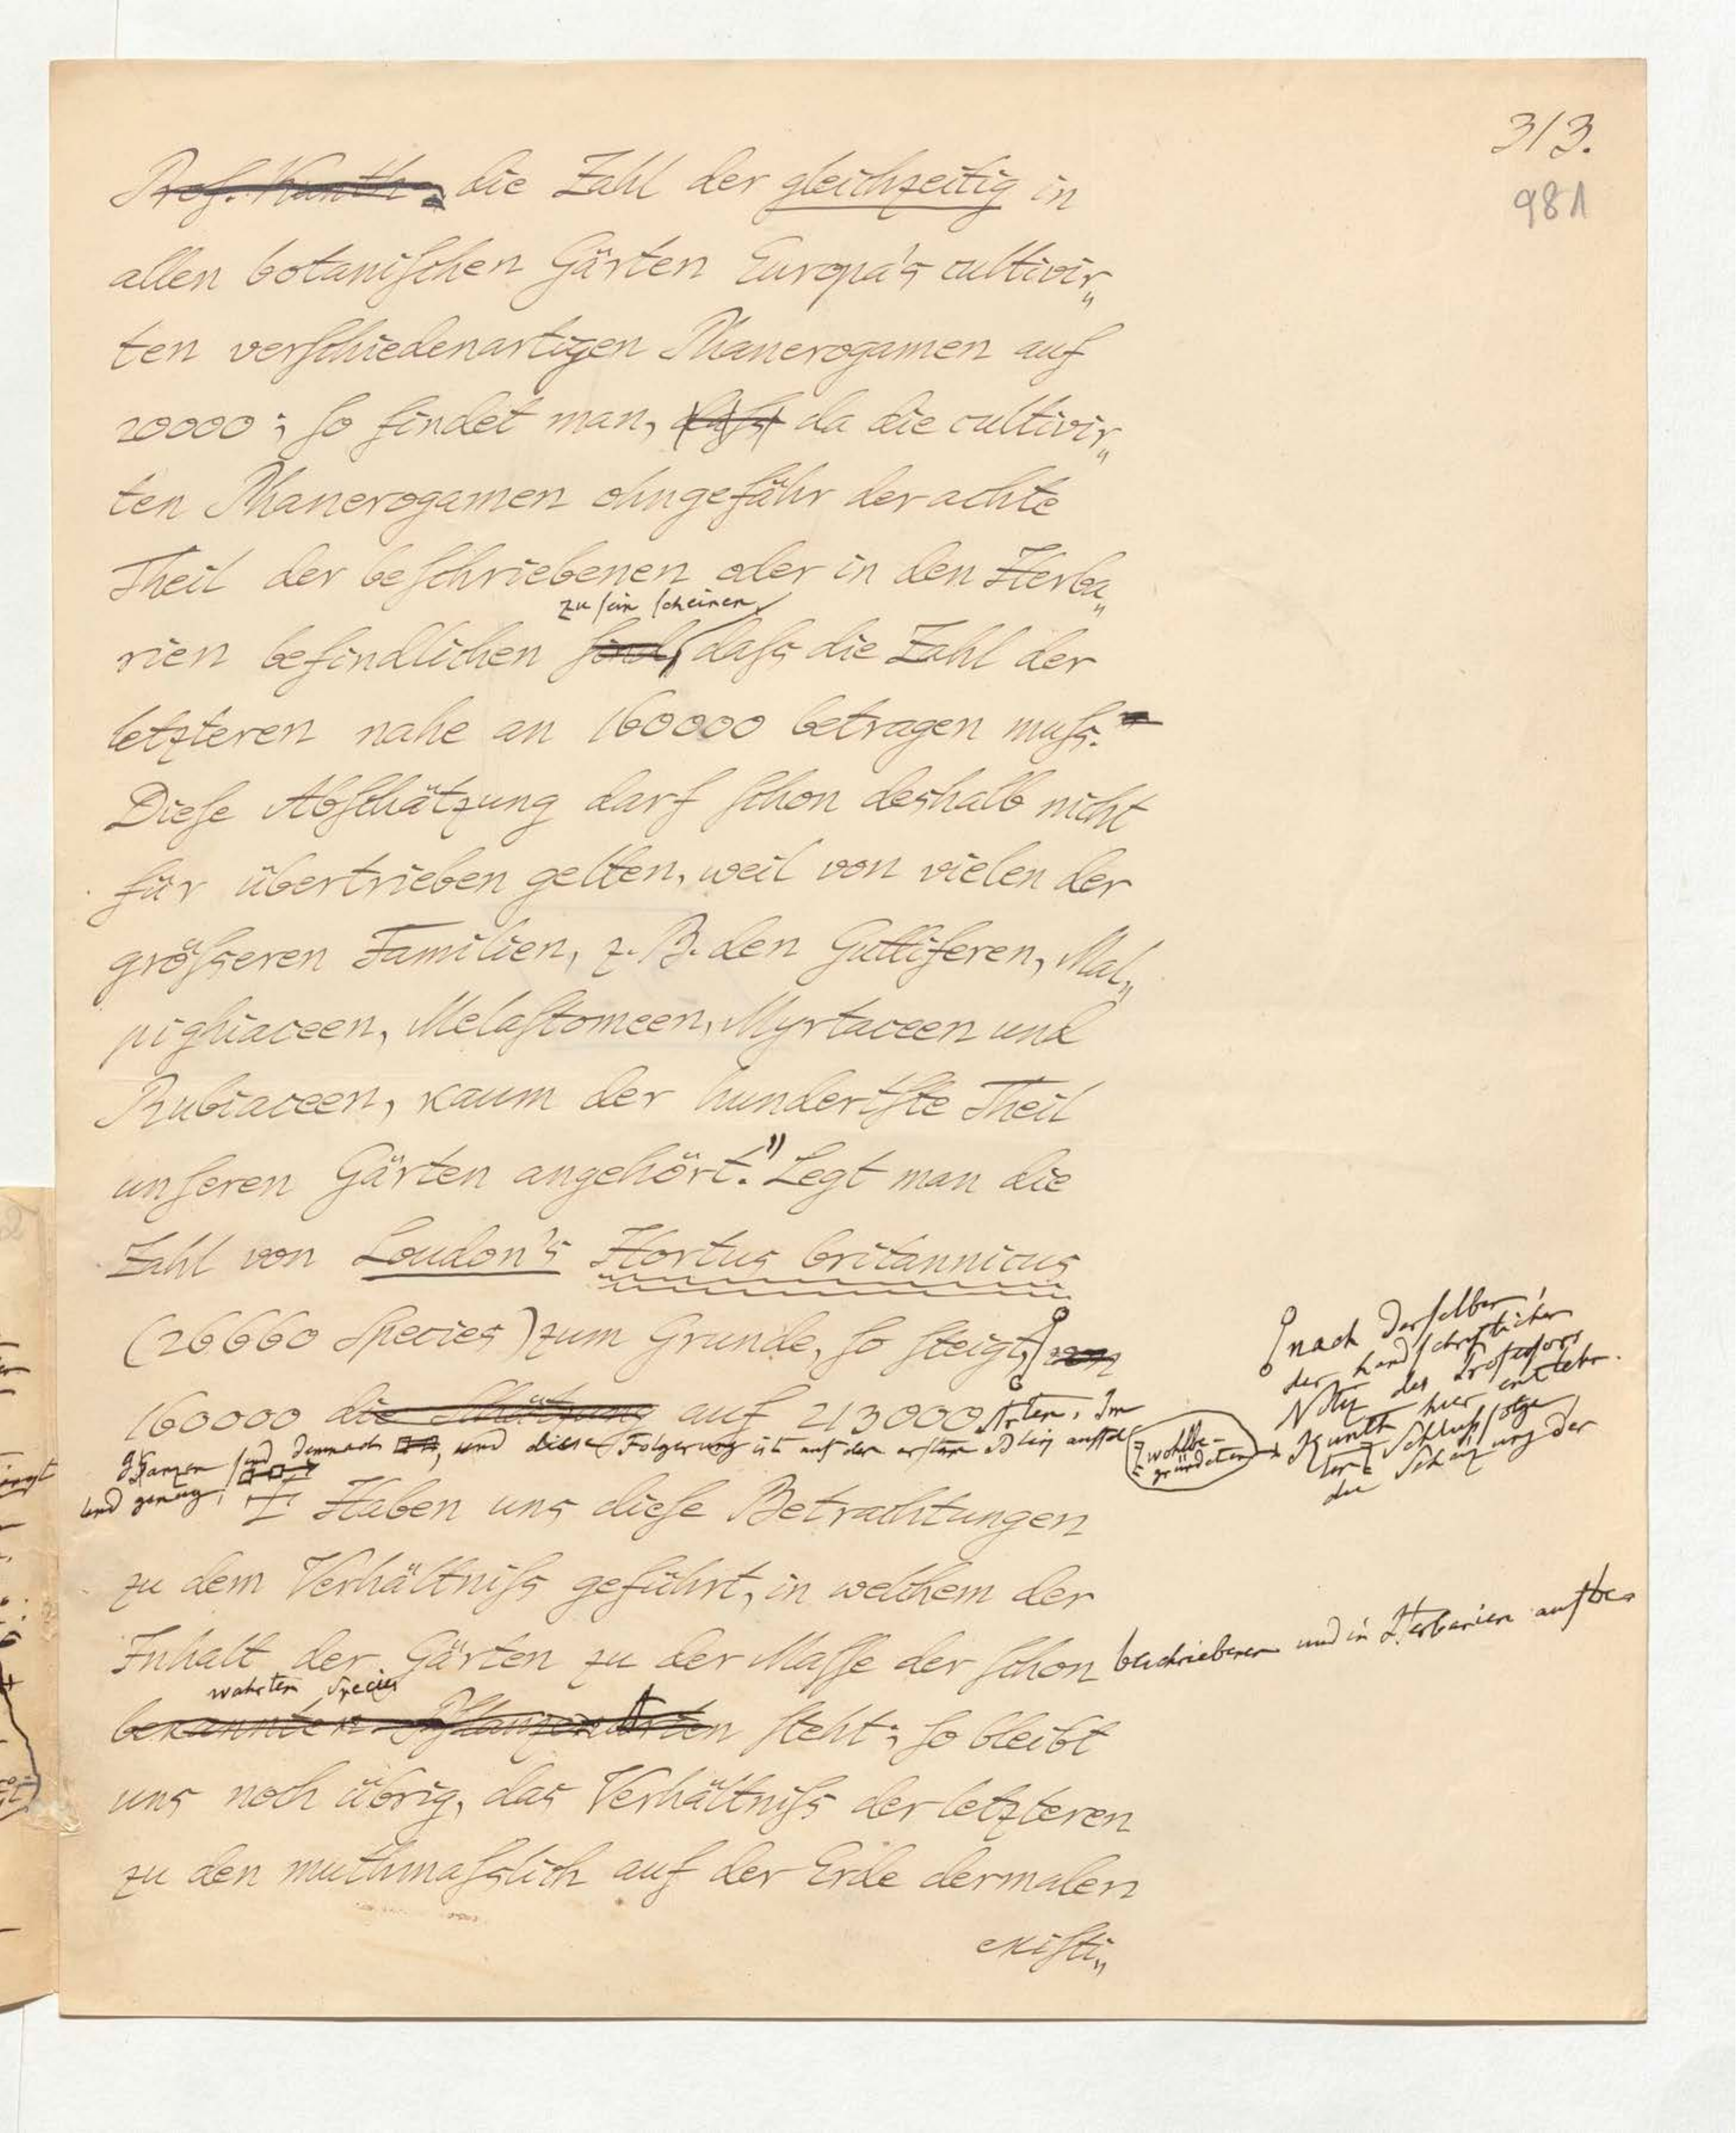 313.
981
Prof. Kunth, die Zahl der gleichzeitig in
allen botaniſchen Gärten Europa's cultivir„
ten verſchiedenartigen Phanerogamen auf
20000; ſo findet man, daſs da die cultivir„
ten Phanerogamen ohngefähr der achte
Theil der beſchriebenen oder in den Herba„
zu ſein ſcheinen,
rien befindlichen ſind, daſs die Zahl der
letzteren nahe an 160000 betragen muſs.
Dieſe Abſchätzung darf ſchon deshalb nicht
für übertrieben gelten, weil von vielen der
gröſseren Familien, z. B. den Guttiferen, Mal„
pighiaceen, Melaſtomeen, Myrtaceen und
Rubiaceen, kaum der hundertſte Theil
unſeren Gärten angehört." Legt man die
Zahl von Loudon's Hortus britannicus
(26660 Species) zum Grunde, ſo ſteigt, von
nach derſelben,
der handſchriftlichen
Notiz des Professors
Kunth hier entlehn-
ten Schluſsfolge
die Schäzung der
wohlbe-
gründeten
160000 die Schätzung auf 213000 Arten. Im
und diese Folgerung iſt auf den erſten
Haben uns dieſe Betrachtungen
zu dem Verhältniſs geführt, in welchem der
Inhalt der Gärten zu der Maſſe der ſchon beschriebenen und in Herbarien aufbe-
wahrten Species
bekannten Pflanzen Arten ſteht; ſo bleibt
uns noch übrig, das Verhältniſs der letzteren
zu den muthmaſslich auf der Erde dermalen
exiſti„